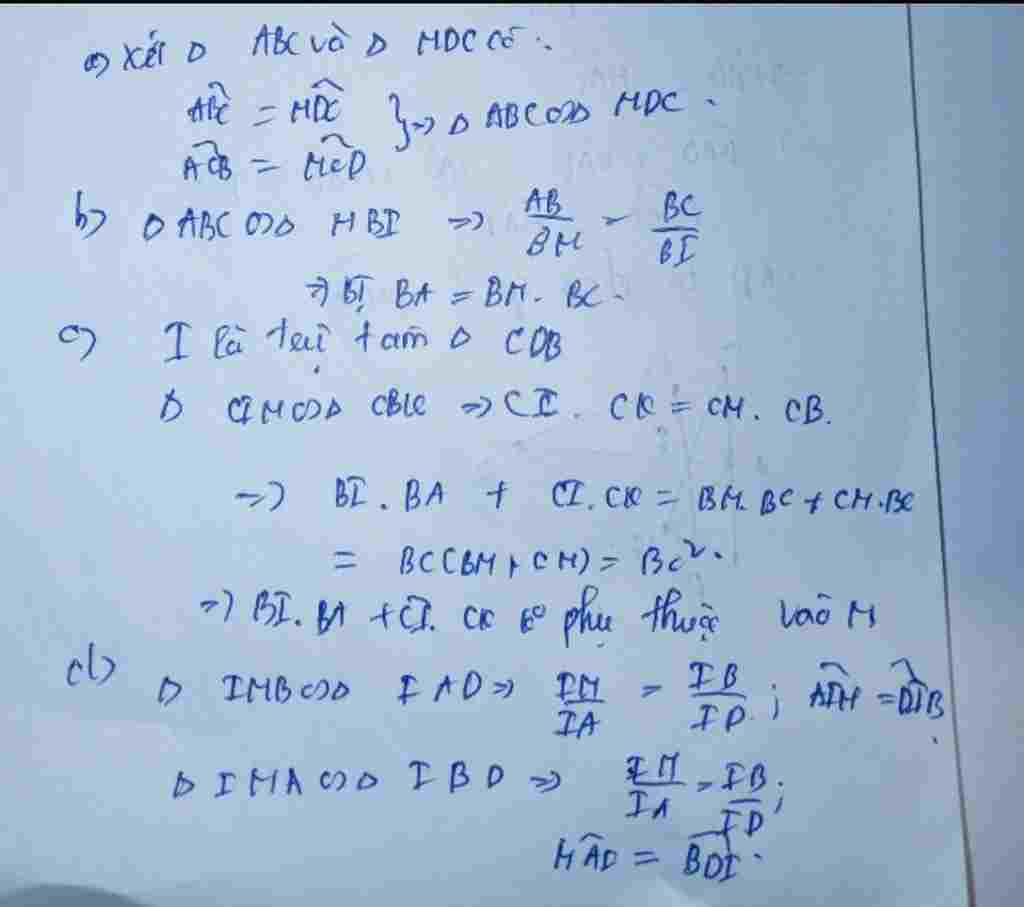 a) Xét Δ ABC và Δ MDC có:
ABC = MDC } => Δ ABC ∽ Δ MDC.
ACB = MCD
b) Δ ABC ∽ Δ MBI => AB/BM = BC/BI
=> BI. BA = BM. BC.
c) I là trực tâm Δ CDB
Δ CIM ∽ Δ CBK => CI. CK = CM. CB.
=> BI. BA + CI. CK = BM. BC + CM. BC
= BC(BM + CM) = BC².
=> BI. BA + CI. CK ko phụ thuộc vào M
d) Δ IMB ∽ Δ IAD => IM/IA = IB/ID; AIM = DIB.
Δ IMA ∽ Δ IBD => IM/IA = IB/ID;
MAD = BDI.